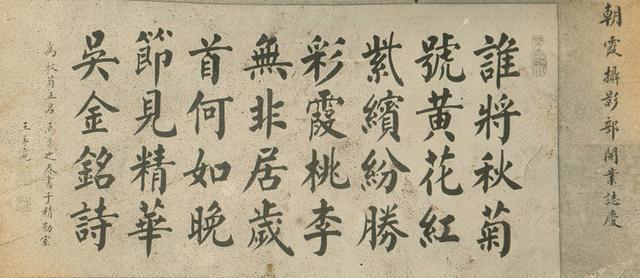 朝霞攝影部開業誌慶
誰將秋菊
號黃花紅
紫繽紛勝
彩霞桃李
無非居歲
首何如晚
節見精華
吳金銘詩
為秋菊正名 之春書于精勤室
王